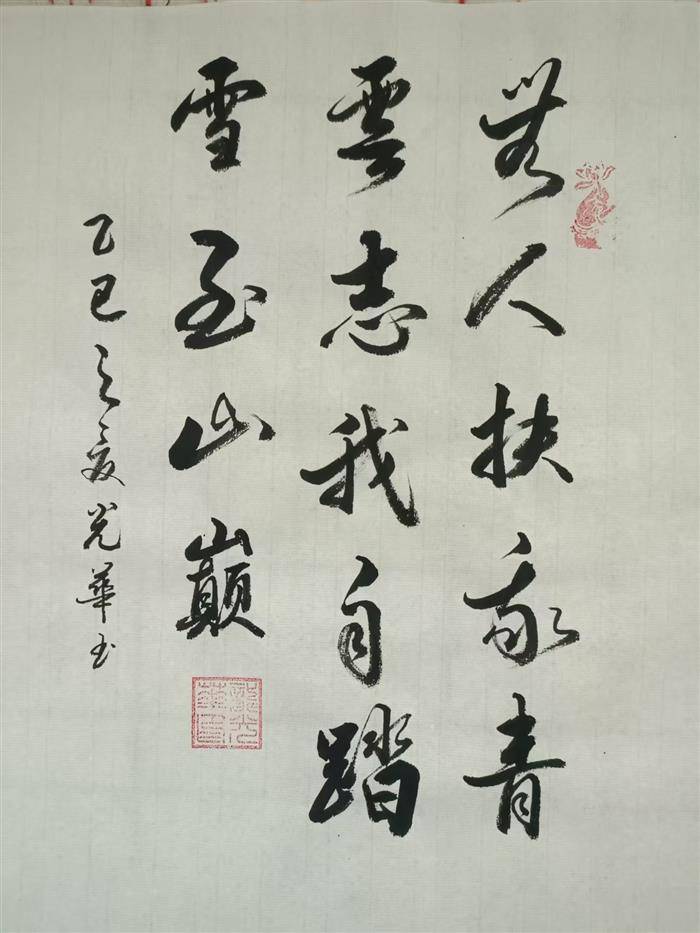 無人扶我青
雲志我自踏
雪至山巅
乙巳之夏光華书